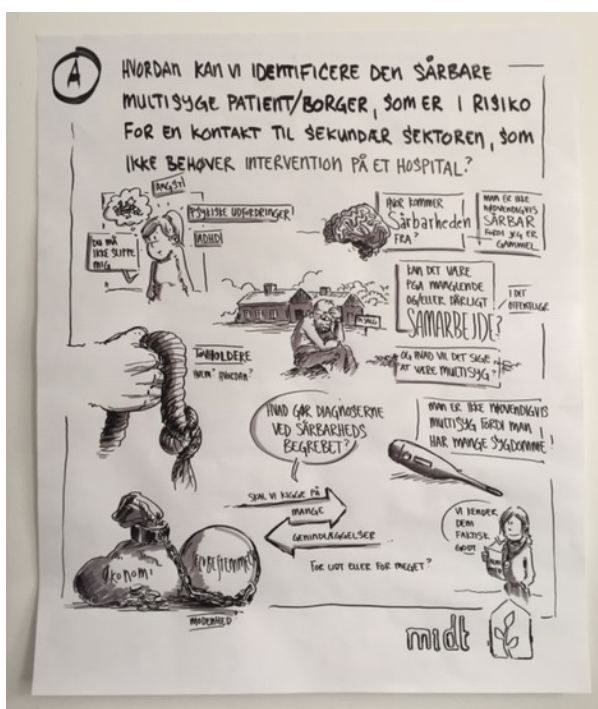 A
HVORDAN KAN VI IDENTIFICERE DEN SÅRBARE
MULTISYGE PATIENT/BORGER, SOM ER I RISIKO
FOR EN KONTAKT TIL SEKUNDÆR SEKTOREN, SOM
IKKE BEHØVER INTERVENTION PÅ ET HOSPITAL?
ANGST!
PSYKISKE UDFORDRINGER!
ADHD!
DU MÅ
IKKE SLIPPE
MIG
HVOR KOMMER
Sårbarheden
FRA?
MAN ER IKKE
NØDVENDIGVIS
SÅRBAR
FORDI JEG ER
GAMMEL
KAN DET VÆRE
PGA MANGLENDE
OG/ELLER DÅRLIGT
SAMARBEJDE?
I DET
OFFENTLIGE
TIL SALG
OG HVAD VIL DET SIGE
AT VÆRE MULTISYG?
TOVHOLDERE
HVEM? HVORDAN?
HVAD GØR DIAGNOSERNE
VED SÅRBARHEDS
BEGREBET?
MAN ER IKKE NØDVENDIGVIS
MULTISYG FORDI MAN
HAR MANGE SYGDOMME!
SKAL VI KIGGE PÅ
MANGE
GENINDLÆGGELSER
FOR LIDT ELLER FOR MEGET?
VI KENDER
DEM
FAKTISK
GODT
ØKONOMI
midt